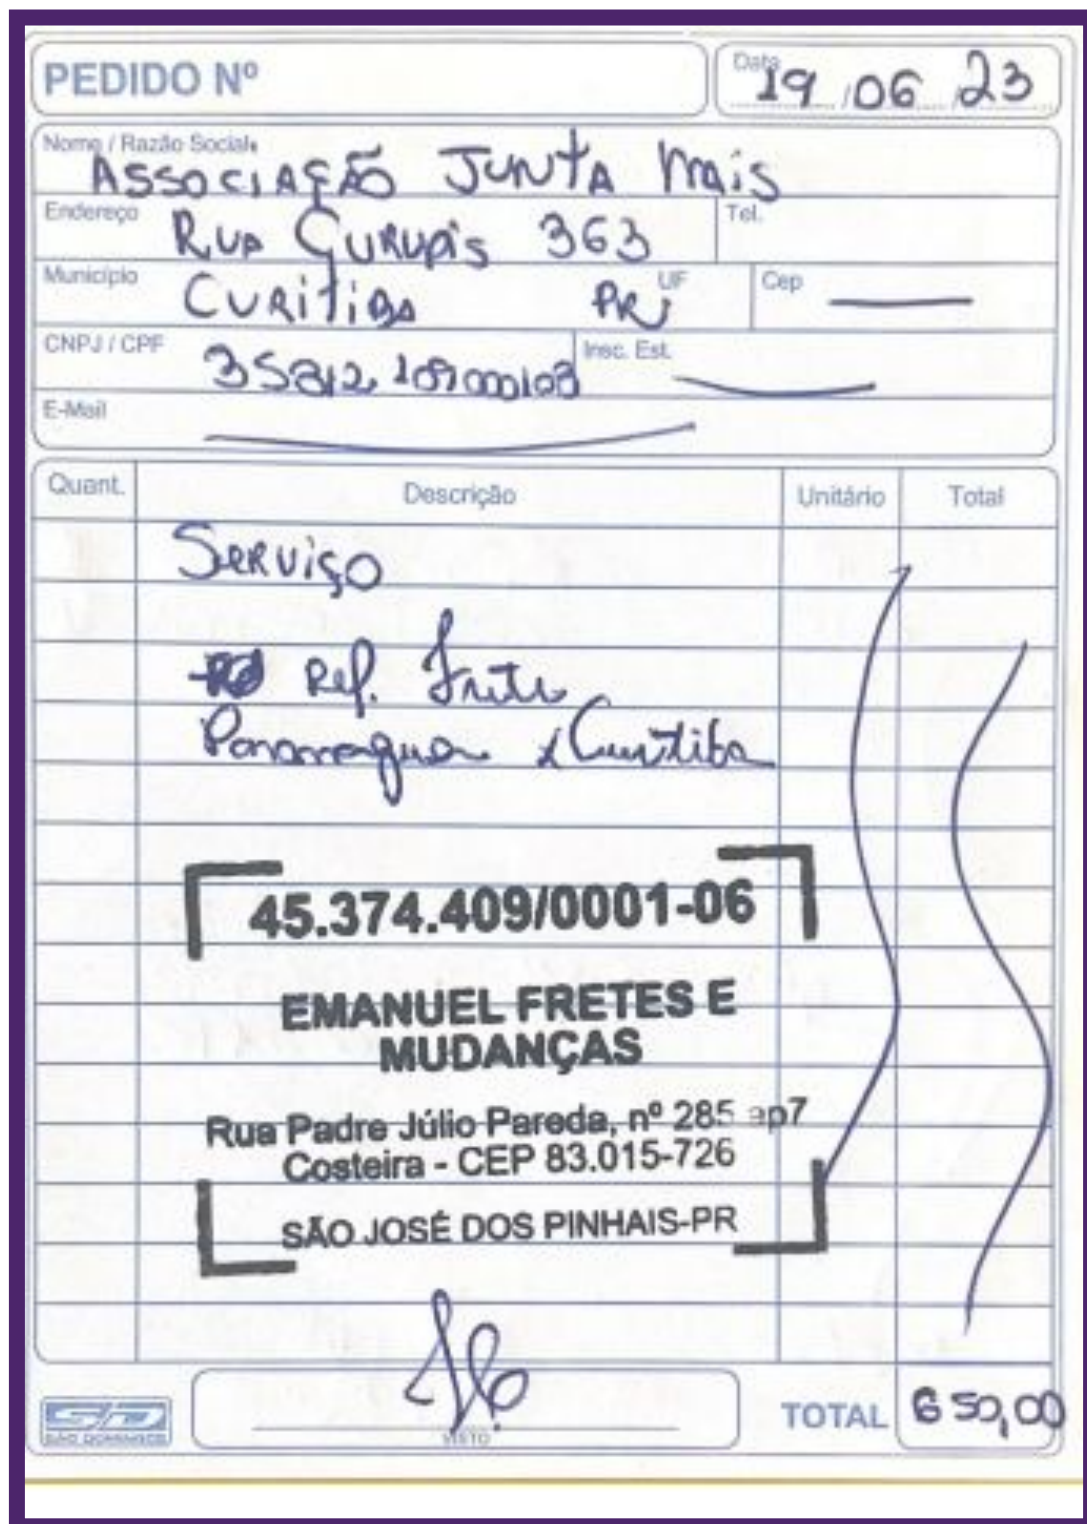 PEDIDO Nº
Data 19/06/23
Nome / Razão Social
ASSOCIAÇÃO JUNTA MAIS
Endereço RUA GURUPIS 363 Tel.
Município CURITIBA PR UF Cep
CNPJ / CPF Insc. Est.
E-Mail
Quant. Descrição Unitário Total
SERVIÇO
Ref. Frete
Paranagua x Curitiba
45.374.409/0001-06
EMANUEL FRETES E
MUDANÇAS
Rua Padre Júlio Pareda, nº 285 ap7
Costeira - CEP 83.015-726
SÃO JOSÉ DOS PINHAIS-PR
SD
SÃO DOMINGOS
VISTO
TOTAL 650,00